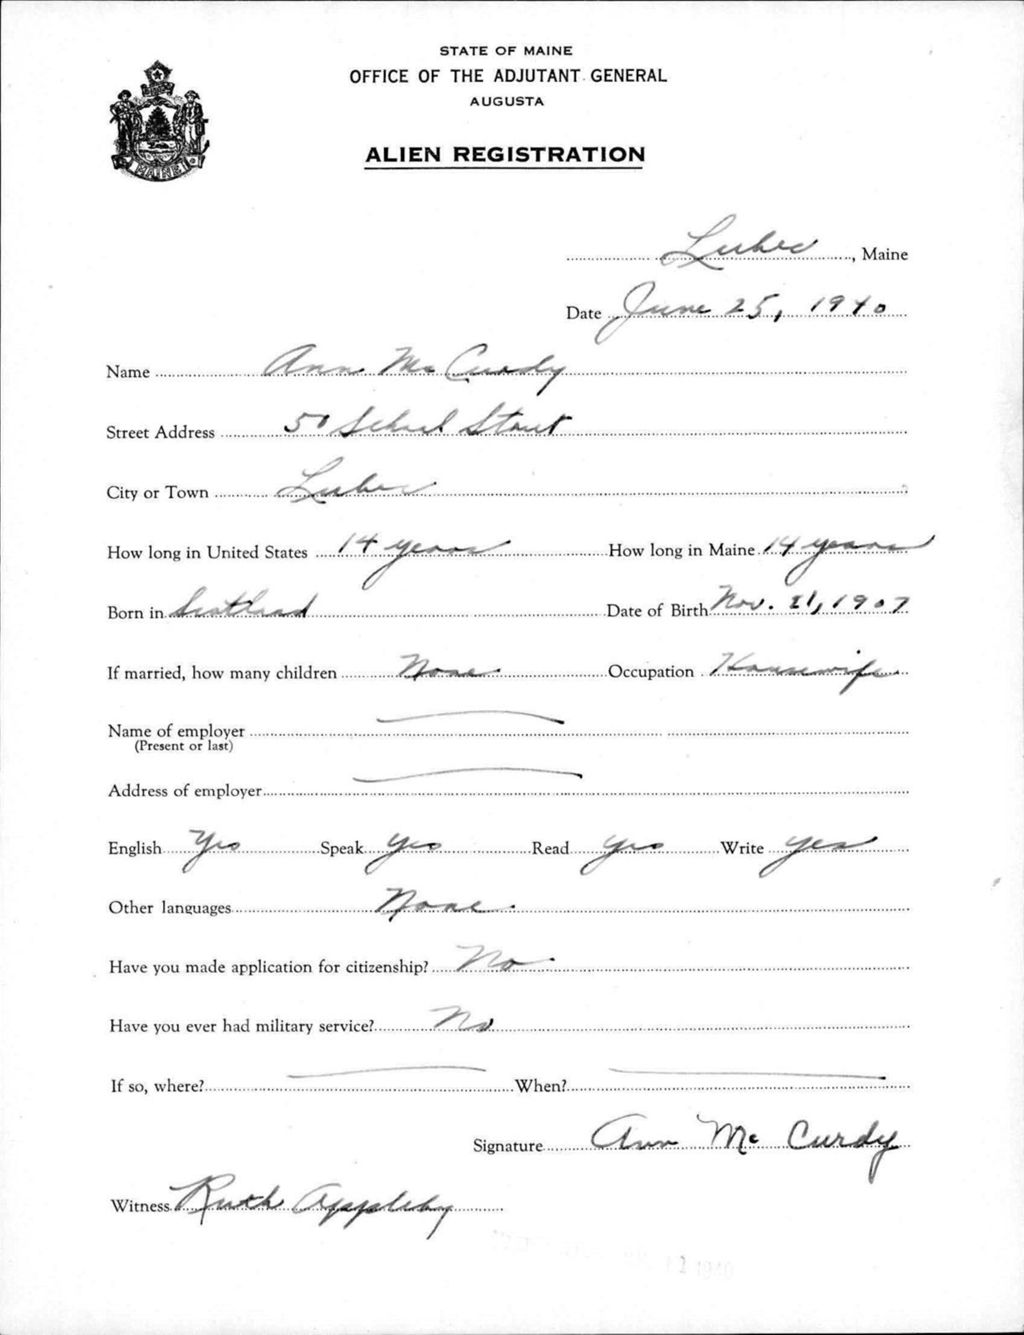 STATE OF MAINE
OFFICE OF THE ADJUTANT GENERAL
AUGUSTA
ALIEN REGISTRATION
MAINE
Lubec, Maine
Date June 25, 1940
Name Ann Mc Curdy
Street Address 50 School Street
City or Town Lubec
How long in United States 14 years How long in Maine 14 years
Born in Scotland Date of Birth Nov. 21, 1907
If married, how many children None Occupation Housewife
Name of employer
(Present or last)
Address of employer
English Yes Speak yes Read yes Write yes
Other languages None.
Have you made application for citizenship? No
Have you ever had military service? No
If so, where? When?
Signature Ann Mc Curdy
Witness Ruth Appleby
12 1940